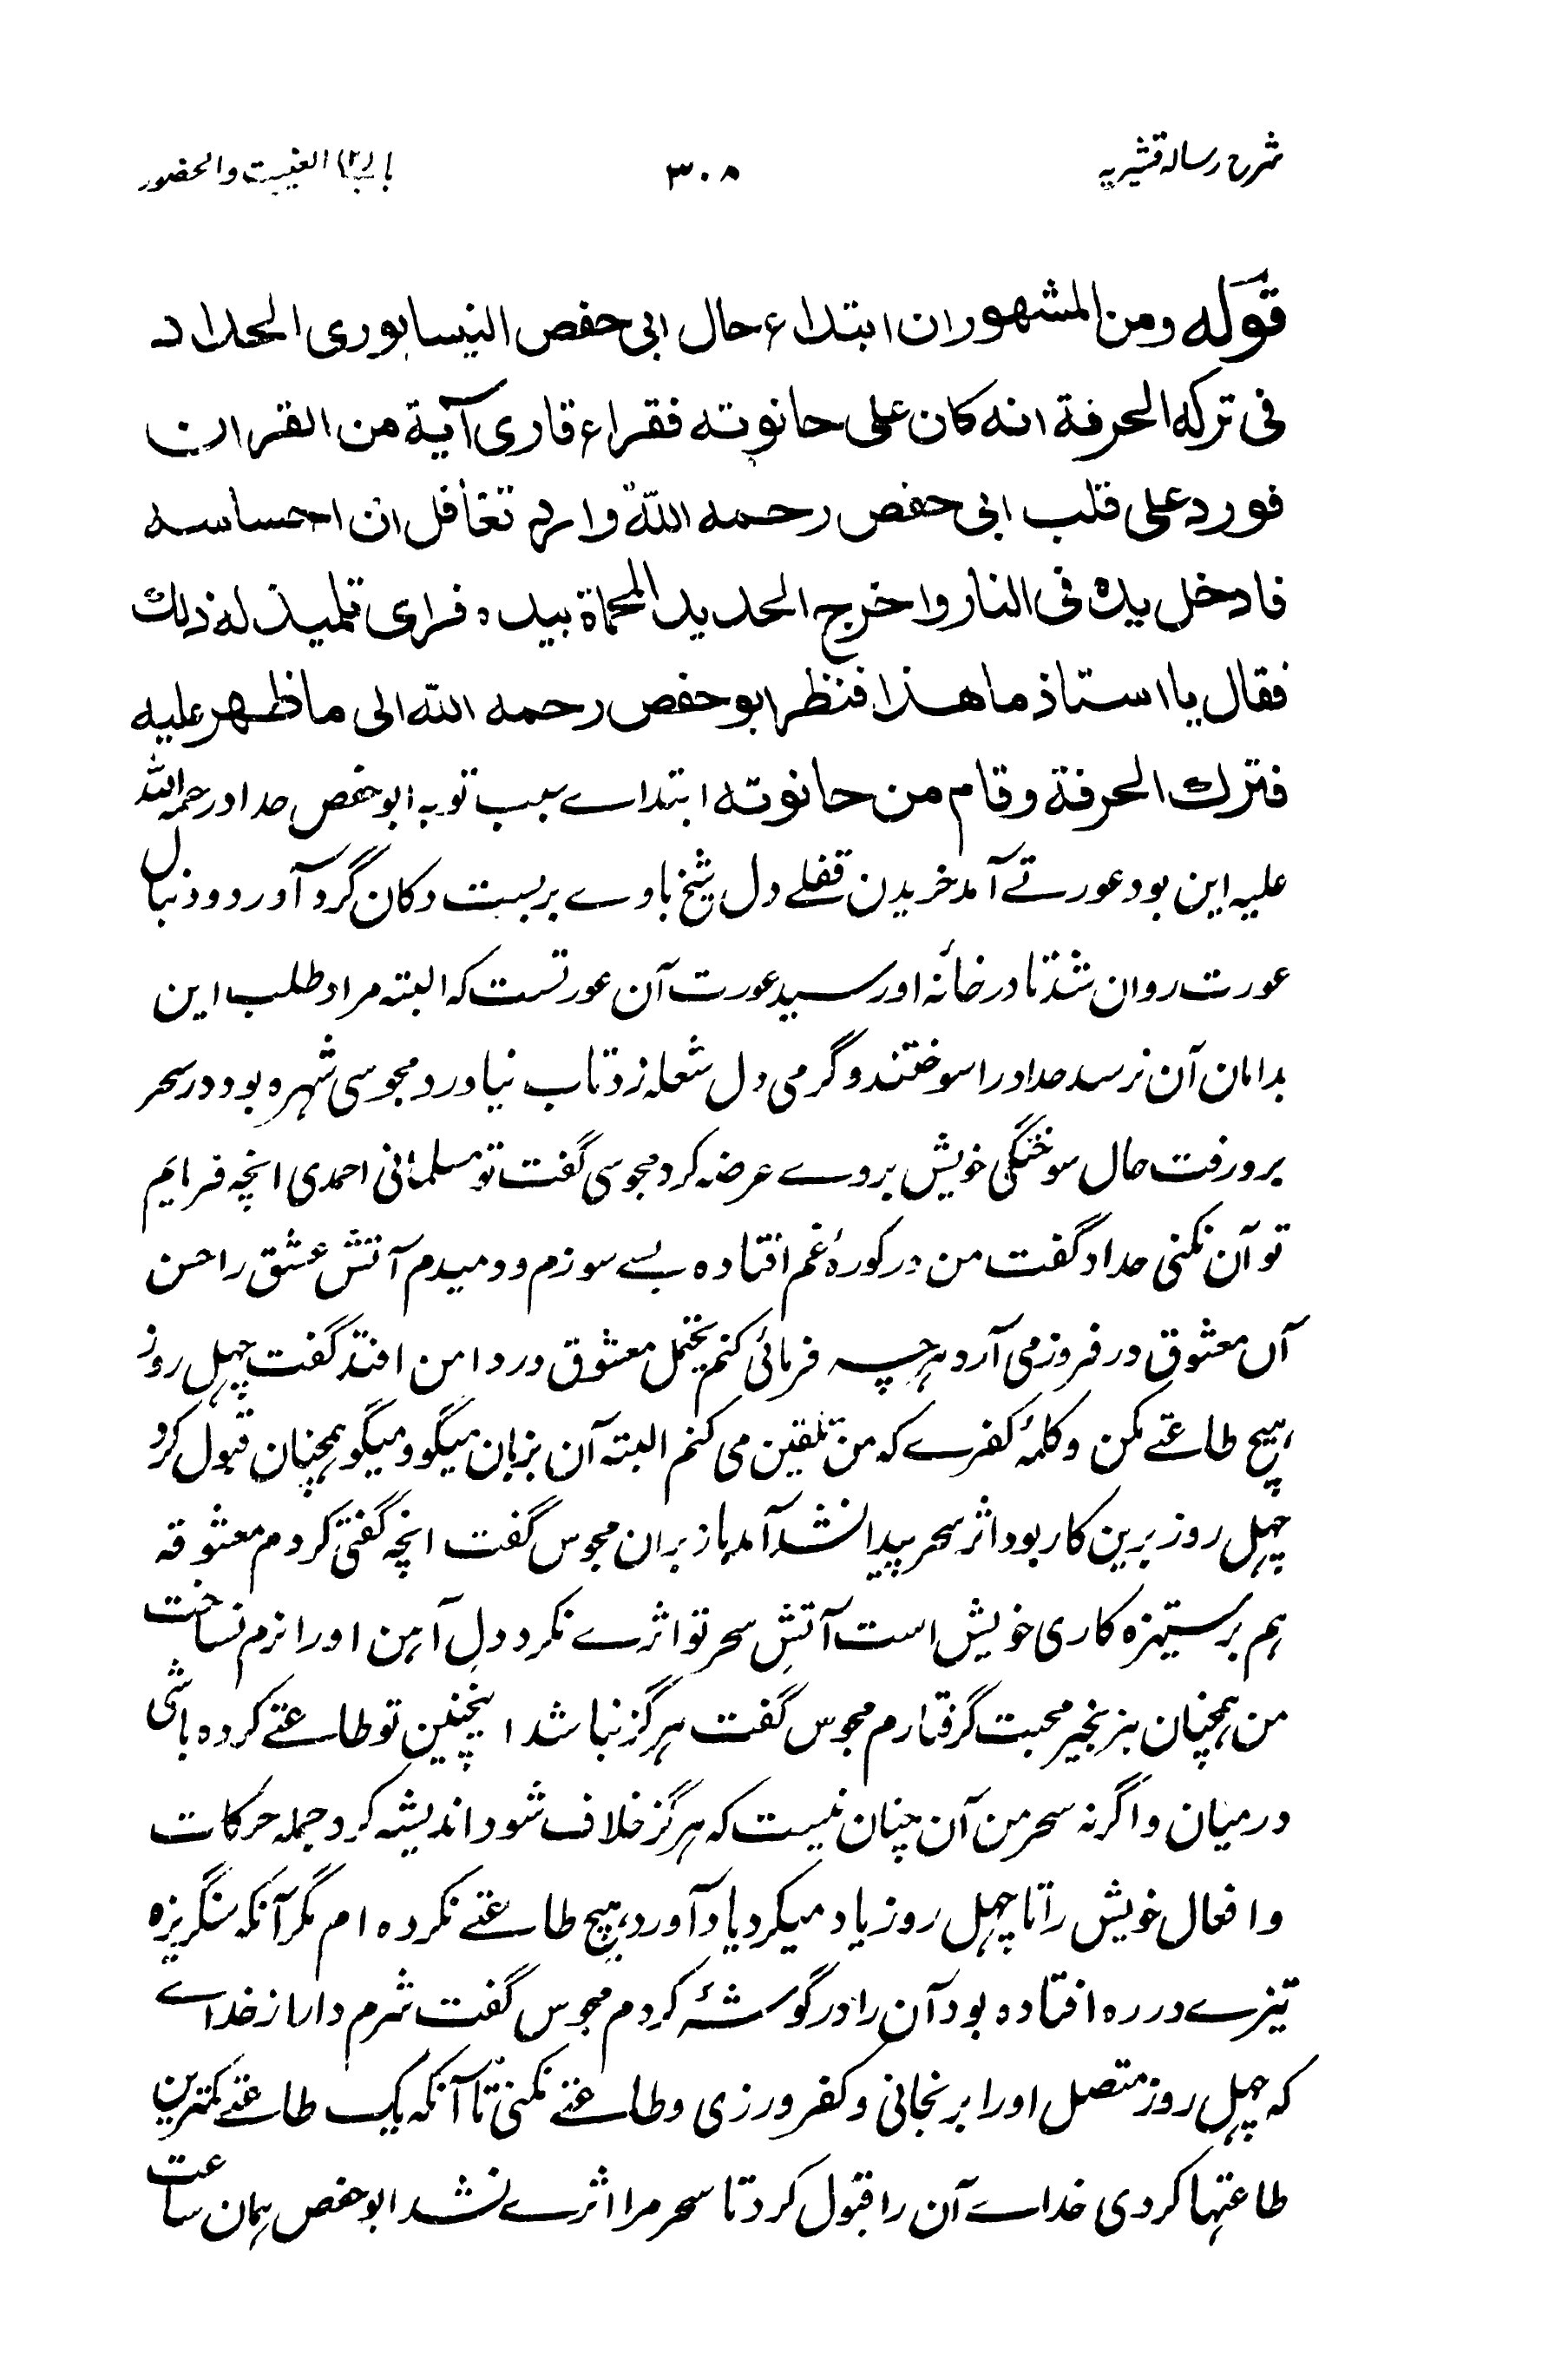 شرح رساله قشیریه ۳۰۸ باب (۲) الغیبت والحضور
قوله ومن المشهور ان ابتداء حال ابی حفص النیسابوری الحداد
فی ترکه الحرفة انه کان علی حانوته فقراء قاری آیة من القران
فورد علی قلب ابی حفص رحمه الله وارد تغافل ان احساسه
فادخل یده فی النار واخرج الحدید المحماة بیده فرای تلمیذ له ذلك
فقال یا استاذ ما هذا فنظر ابو حفص رحمه الله الی ما ظهر علیه
فترك الحرفة وقام من حانوته ابتداے سبب توبه ابو حفص حداد رحمة الله
علیه این بود عورتے آمد خریدن قفلے دل شیخ باوے بربست دکان گرد آورد و دنبال
عورت روان شد تا در خانۂ او رسید عورت آن عورتست که البته مراد طلب این
بدامان آن نرسد حداد را سوختند و گرمی دل شعله زد تاب نیاورد مجوسی شهره بود در سحر
برو رفت حال سوختگی خویش بروے عرضه کرد مجوسی گفت تو مسلمانی احمدی انچه فرمایم
تو آن نکنی حداد گفت من در کورۂ غم افتاده بسے سوزم و دمیدم آتش عشق را حسن
آں معشوق در فروز می آرد هرچه فرمائی کنم یحتمل معشوق در دامن افتد گفت چهل روز
هیچ طاعتے مکن و کلمۂ کفرے که من تلقین می کنم البته آن بزبان میگو و میگو همچنان قبول کرد
چهل روز برین کار بود اثر سحر پیدا نشد آمد باز بران مجوس گفت انچه گفتی کردم معشوقه
هم بر ستیزه کاری خویش است آتش سحر تو اثرے نکرد دل آهن او را نرم نساخت
من همچنان بزنجیر محبت گرفتارم مجوس گفت هرگز نباشد اینچنین تو طاعتے کرده باشی
درمیان و اگرنه سحر من آن چنان نیست که هرگز خلاف شود اندیشه کرد جمله حرکات
و افعال خویش را تا چهل روز یاد میکرد یاد آورد هیچ طاعتے نکرده ام مگر آنکه سنگریزه
تیزے در ره افتاده بود آن را در گوشۂ کردم مجوس گفت شرم دار از خداے
که چهل روز متصل او را برنجانی و کفر ورزی و طاعتے نکنی تا آنکه یک طاعتے کمترین
طاعتها کردی خداے آن را قبول کرد تا سحر مرا اثرے نشد ابو حفص همان ساعت